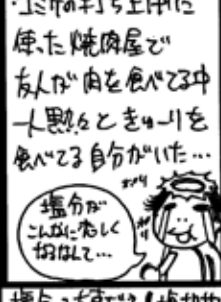 ・コミケの打ち上げに
使った焼肉屋で
友人が肉を食べてる中
一人黙々ときゅーりを
食べてる自分がいた…
塩分が
こんなに恋しく
なるなんて…
ポリ
ポリ